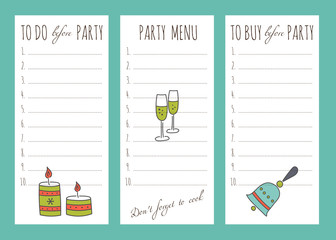 TO DO before PARTY
1.
2.
3.
4.
5.
6.
7.
8.
9.
10.
PARTY MENU
1.
2.
3.
4.
5.
6.
7.
8.
9.
10.
Don't forget to cook
TO BUY before PARTY
1.
2.
3.
4.
5.
6.
7.
8.
9.
10.